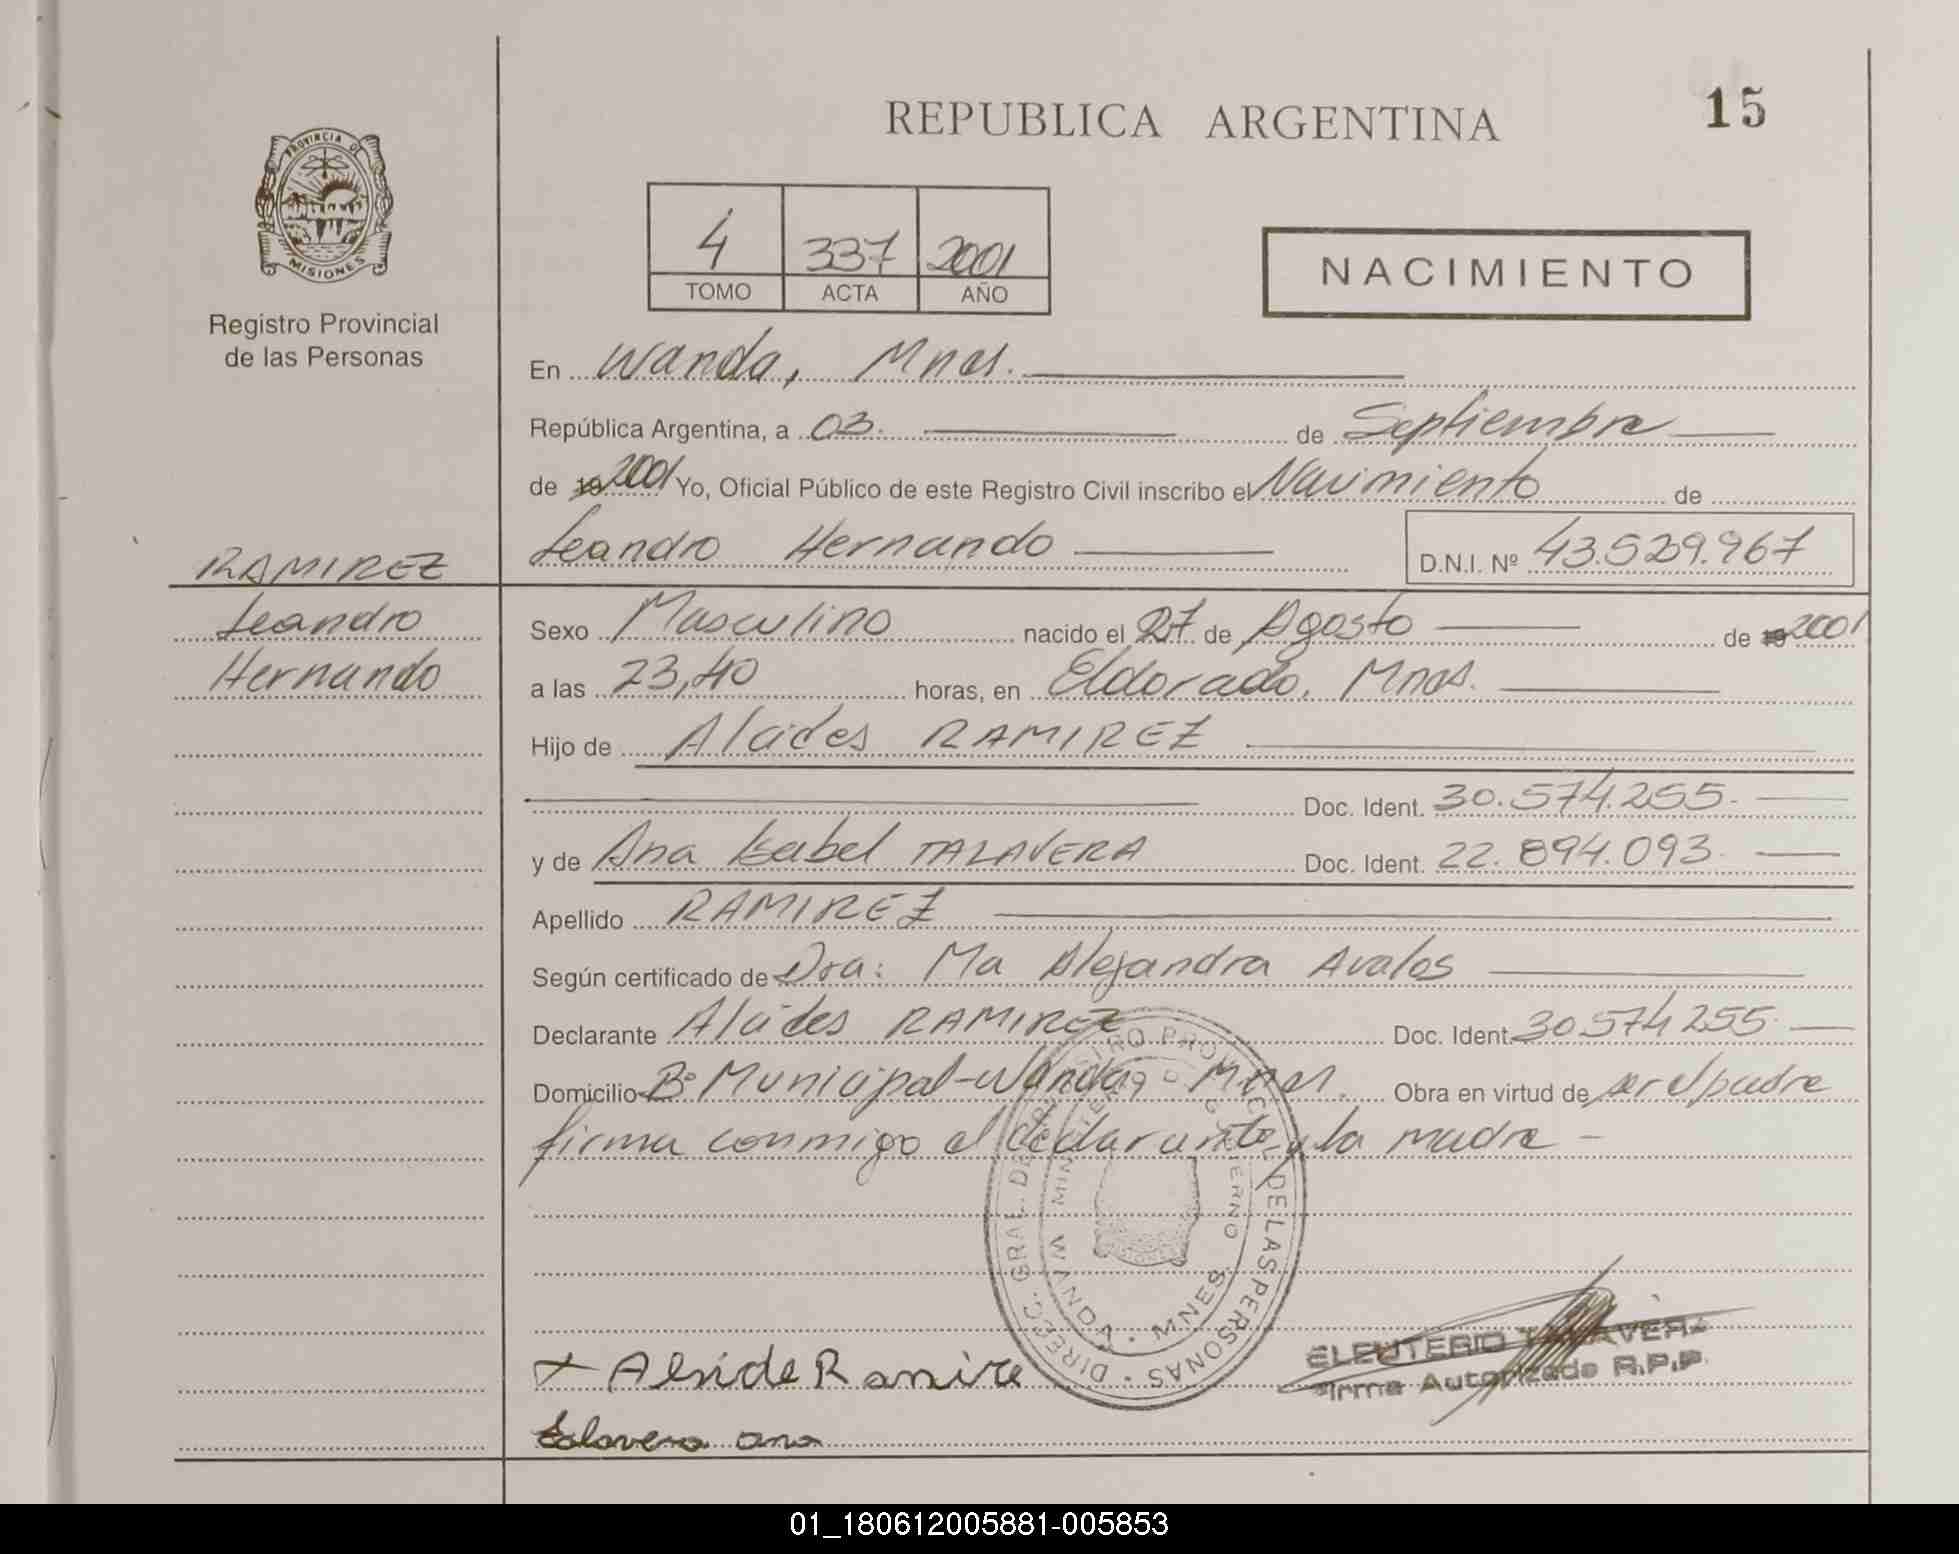 REPUBLICA ARGENTINA
15
PROVINCIA DE
MISIONES
Registro Provincial
de las Personas
4 337 2001
TOMO ACTA AÑO
NACIMIENTO
En Wanda, Mnes.
República Argentina, a 03. de Septiembre
de 19 2001 Yo, Oficial Público de este Registro Civil inscribo el Nacimiento de
Leandro Hernando D.N.I. Nº 43.529.967
RAMIREZ
Leandro
Hernando
Sexo Masculino nacido el 27 de Agosto de 19 2001
a las 23,40 horas, en Eldorado, Mnes.
Hijo de Alcides RAMIREZ
Doc. Ident. 30.574.255.
y de Ana Isabel TALAVERA Doc. Ident. 22.894.093.
Apellido RAMIREZ
Según certificado de Dra: Ma Alejandra Avalos
Declarante Alcides RAMIREZ Doc. Ident. 30.574.255.
Domicilio Bº Municipal - Wanda, Mnes. Obra en virtud de ser el padre
firma conmigo el declarante y la madre -
DIRECC. GRAL. DE REGISTRO PROVINCIAL DE LAS PERSONAS
MINISTERIO DE GOBIERNO
WANDA - MNES.
Alside Ramire
ELEUTERIO TALAVERA
Firma Autorizada R.P.P.
talavera ana
01_180612005881-005853